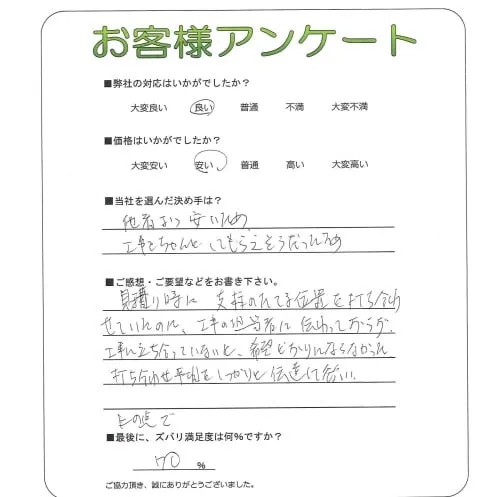 お客様アンケート
■弊社の対応はいかがでしたか？
大変良い 良い 普通 不満 大変不満
■価格はいかがでしたか？
大変安い 安い 普通 高い 大変高い
■当社を選んだ決め手は？
他者より安いため
工事をちゃんとしてもらえそうだったため
■ご感想・ご要望などをお書き下さい。
見積り時に 支柱のたてる位置を打ち合わ
せていたのに、工事の担当者に伝わっておらず、
工事に立ち合っていないと、希望どおりにならなかった
打ち合わせ事項をしっかりと伝達して欲しい。
上の点で
■最後に、ズバリ満足度は何％ですか？
70 %
ご協力頂き、誠にありがとうございました。